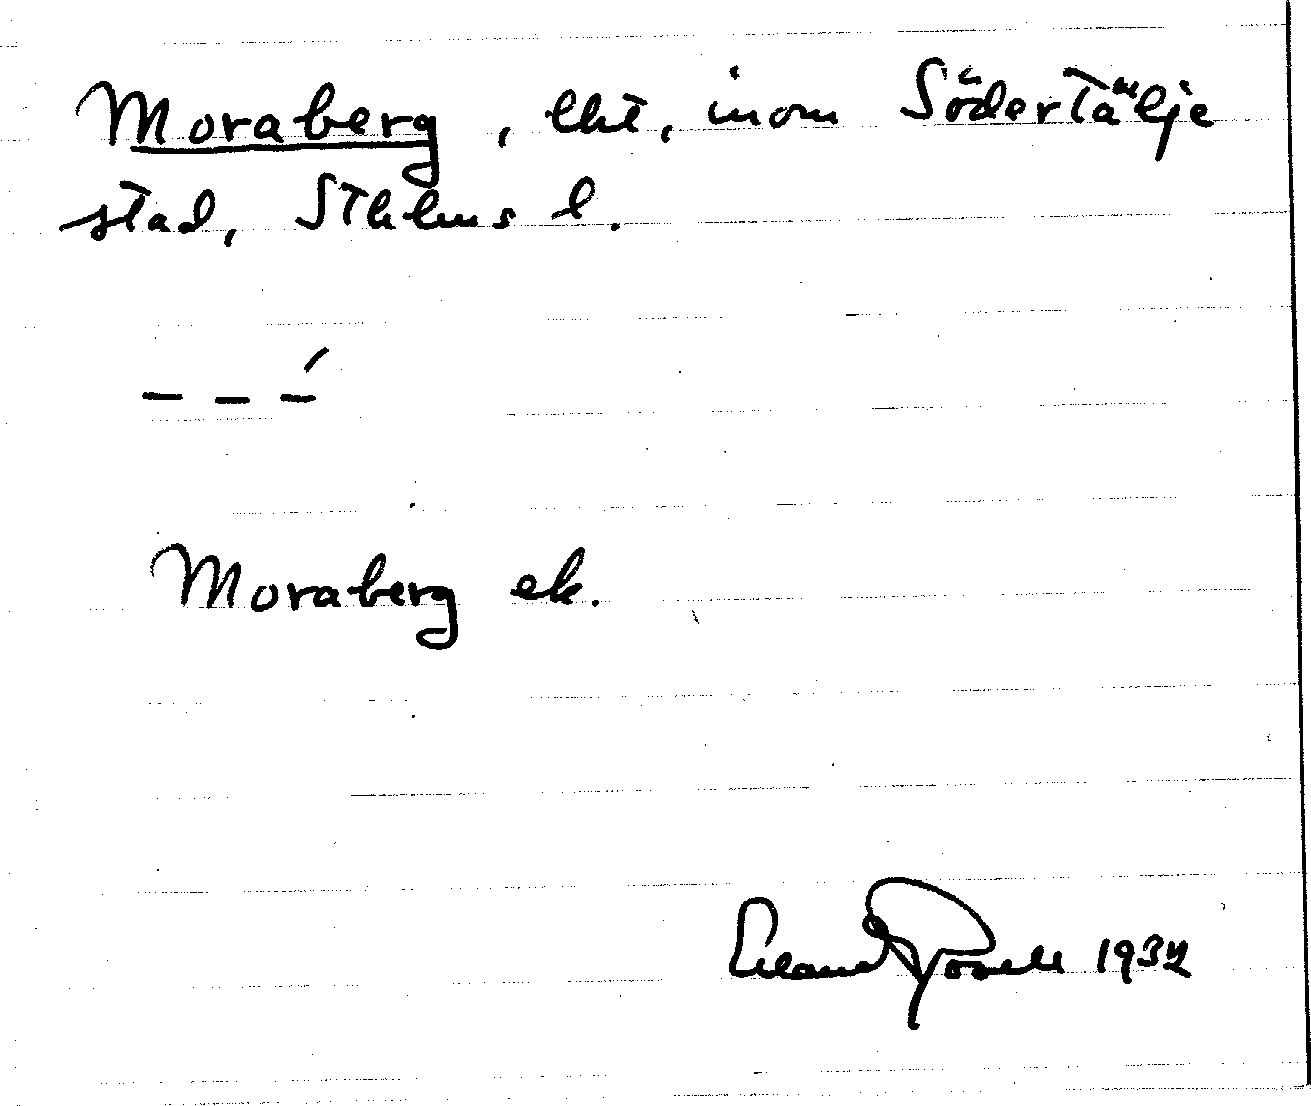 Moraberg, lht, inom Södertälje
stad, Sthlms l.
– – –́
Moraberg ek.
Erland Rosell 1937